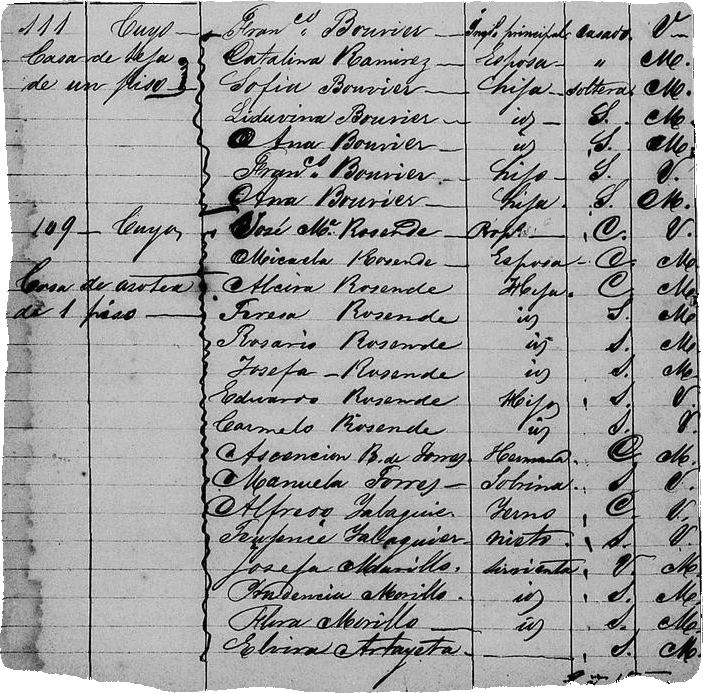 111 Cuyo Fran.co Bouvier Inq.o principal casado V.
Casa de teja Catalina Ramirez Esposa " M.
de un piso Sofia Bouvier hija soltera M.
Liduvina Bouvier id S. M.
Ana Bouvier id S. M.
Fran.co Bouvier hijo S. V.
Ana Bouvier hija S. M.
109 Cuyo José Ma. Rosende C. V.
Micaela Rosende Esposa C. M
Casa de azotea Alcira Rosende Hija. C M
de 1 piso Teresa Rosende id S. M
Rosario Rosende id S. M
Josefa Rosende id S. M
Eduardo Rosende Hijo S. V.
Carmelo Rosende id S. V.
Ascencion R. de Torres. Hermana. C M.
Manuela Torres Sobrina. S V.
Alfredo Yerno C V.
nieto. S. V.
Josefa Murillo. sirvienta V. M
Prudencia Morillo. id S. M
Flora Morillo id S. M
Elvira Artayeta S. M.